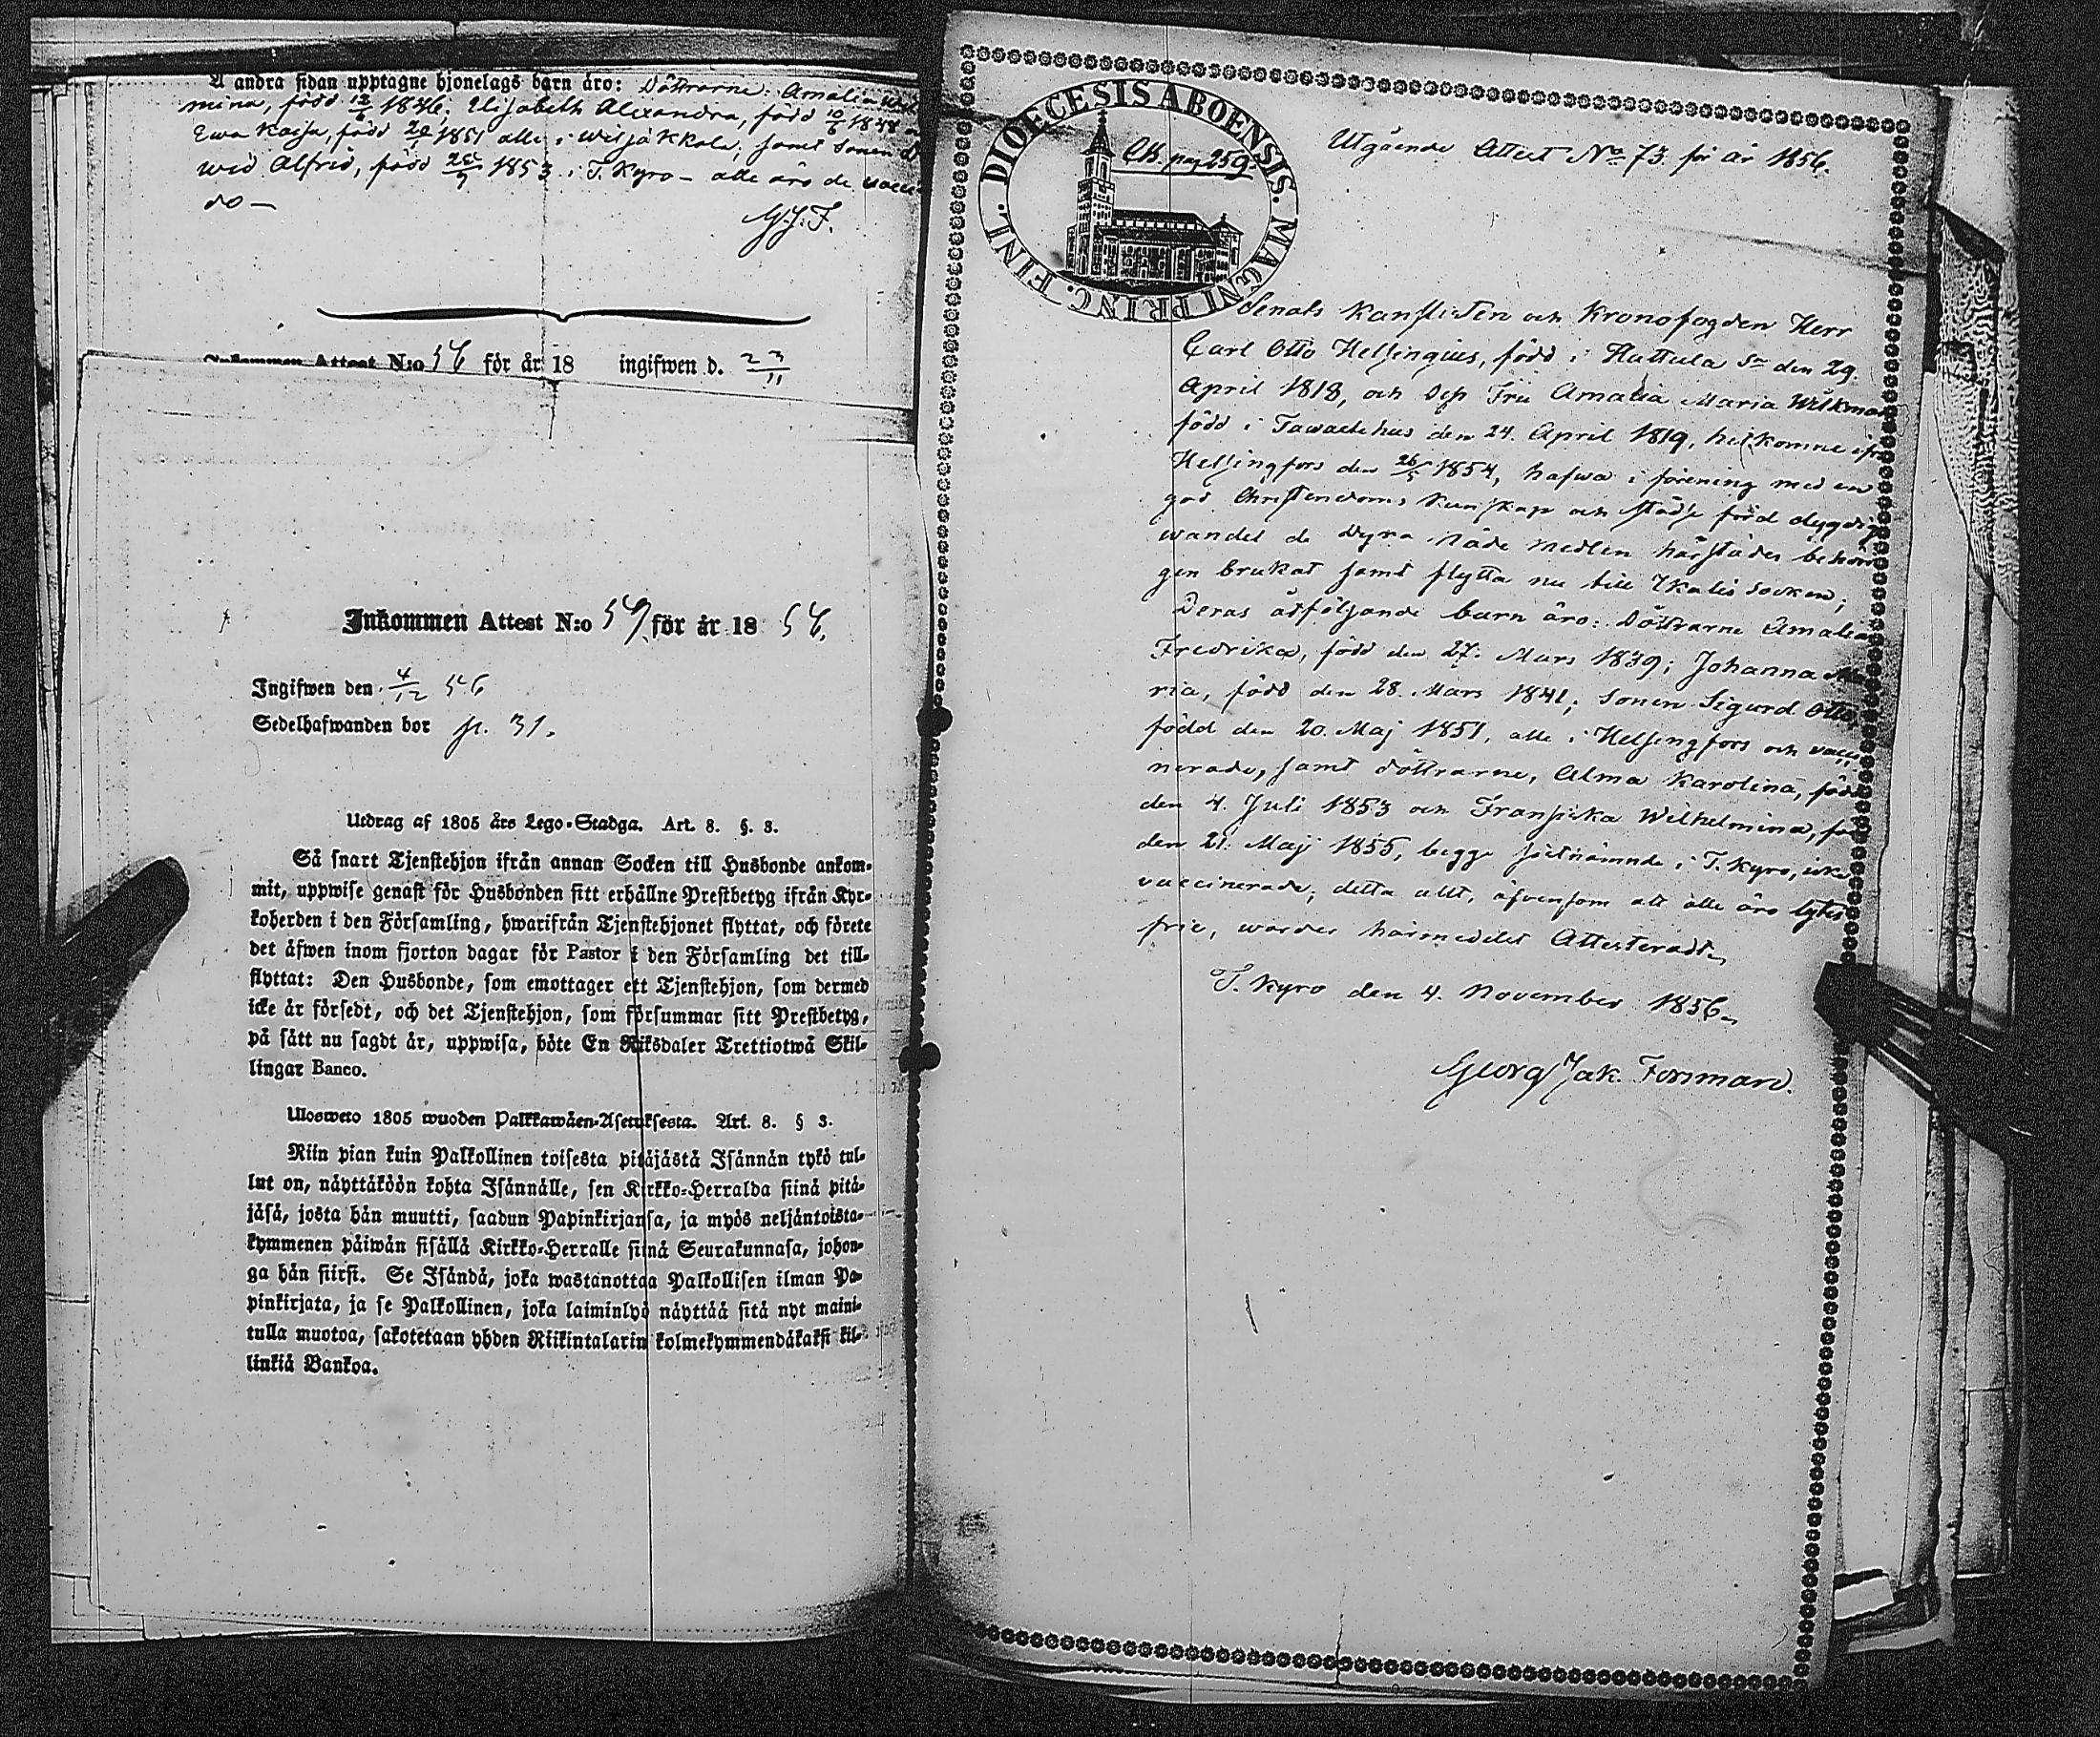 Å andra sidan upptagne hjonelags barn äro: Döttrarne: Amalia
mina, född 12/6 1846; Elisabeth Alexandra, född 10/6 1848
Ewa Kajsa, född 1851 alla i Wiljakkala; samt Sonen
wid Alfrid, född 1853 i T. Kyro – alla äro de
de –
G.J.F.
Inkommen Attest N:o 56 för år 18 ingifwen d. 23/11
Inkommen Attest N:o 59 för år 1856.
Ingifwen den 4/12 56
Sedelhafwanden bor p. 31.
Utdrag af 1805 års Lego-Stadga. Art. 8. §. 3.
Så snart Tjenstehjon ifrån annan Socken till Husbonde ankom-
mit, uppwise genast för Husbonden sitt erhållne Prestbetyg ifrån Kyr-
koherden i den Församling, hwarifrån Tjenstehjonet flyttat, och förete
det äfwen inom fjorton dagar för Pastor i den Församling det till-
flyttat: Den Husbonde, som emottager ett Tjenstehjon, som dermed
icke är försedt, och det Tjenstehjon, som försummar sitt Prestbetyg,
på sätt nu sagdt är, uppwisa, böte En Riksdaler Trettiotwå Skil-
lingar Banco.
Ulosweto 1805 wuoden Palkkawäen-Asetuksesta. Art. 8. § 3.
Niin pian kuin Palkollinen toisesta pitäjästä Isännän tykö tul-
lut on, näyttäköön kohta Isännälle, sen Kirkko-Herralda siinä pitä-
jäsä, josta hän muutti, saadun Papinkirjansa, ja myös neljäntoista-
kymmenen päiwän sisällä Kirkko-Herralle siinä Seurakunnasa, johon-
ga hän siirsi. Se Isändä, joka wastanottaa Palkollisen ilman Pa-
pinkirjata, ja se Palkollinen, joka laiminlyö näyttää sitä nyt maini-
tulla muotoa, sakotetaan yhden Riikintalarin kolmekymmendäkaksi kil-
linkiä Bankoa.
DIOECESIS ABOENSIS. MAGNI PRINC. FINL.
CB. pag 259.
Utgående Attest No 73 för år 1856.
Senats Kanslisten och Kronofogden Herr
Carl Otto Helsingius, född i Hattula Sn den 29.
April 1818, och dess Fru Amalia Maria Wilkman
född i Tawastehus den 24. April 1819, hitkomne ifrån
Helsingfors den 26/5 1854, hafwa i förening med en
god Christendoms Kunskap och städse förd dygdig
wandel de Dyra Nåde medlen härstädes behöri
gen brukat samt flytta nu till Ikalis Socken;
Deras åtföljande barn äro: Döttrarne Amalia
Fredrika, född den 27. Mars 1839; Johanna Ma
ria, född den 28. Mars 1841; Sonen Sigurd Otto,
född den 20. Maj 1851, alla i Helsingfors och vacci
nerade, samt döttrarne, Alma Karolina, född
den 4. Juli 1853 och Fransiska Wilhelmina, född
den 21. Maj 1855, begge sistnämnde i T. Kyro, icke
vaccinerade; detta allt, äfvensom att alla äro lytes
frie, warder härmedelst Attesteradt.
T. Kyro den 4. November 1856.
Georg Jak. Forsmard.